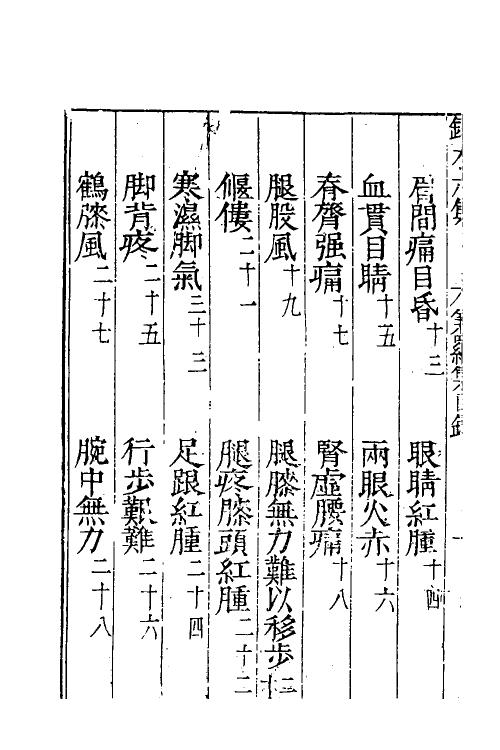 眉間痛目昏十三
眼睛紅腫十四
血貫目睛十五
兩眼火赤十六
脊膂强痛十七
腎虛腰痛十八
腿股風十九
腿膝無力難以移步二十
傴僂二十一
腿疼膝頭紅腫二十二
寒濕脚氣二十三
足跟紅腫二十四
脚背疼二十五
行步艱難二十六
鶴膝風二十七
腕中無力二十八